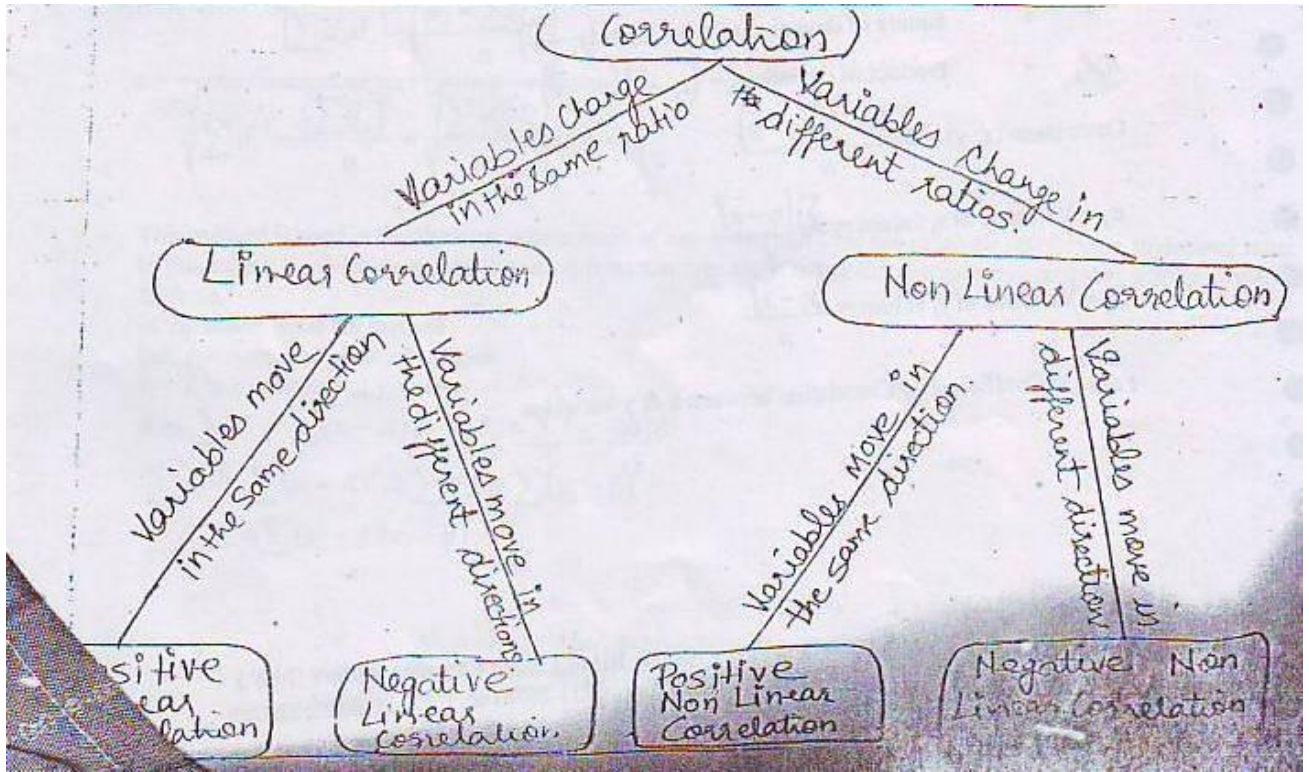 Correlation
Variables change
in the same ratio
Variables change in
the different ratios.
Linear Correlation
Non Linear Correlation
Variables move
in the same direction
Variables move in
the different directions
Variables Move in
the same direction
Variables move in
different direction
sitive
ear
elation
Negative
Linear
Correlation.
Positive
Non Linear
Correlation
Negative Non
Linear Correlation